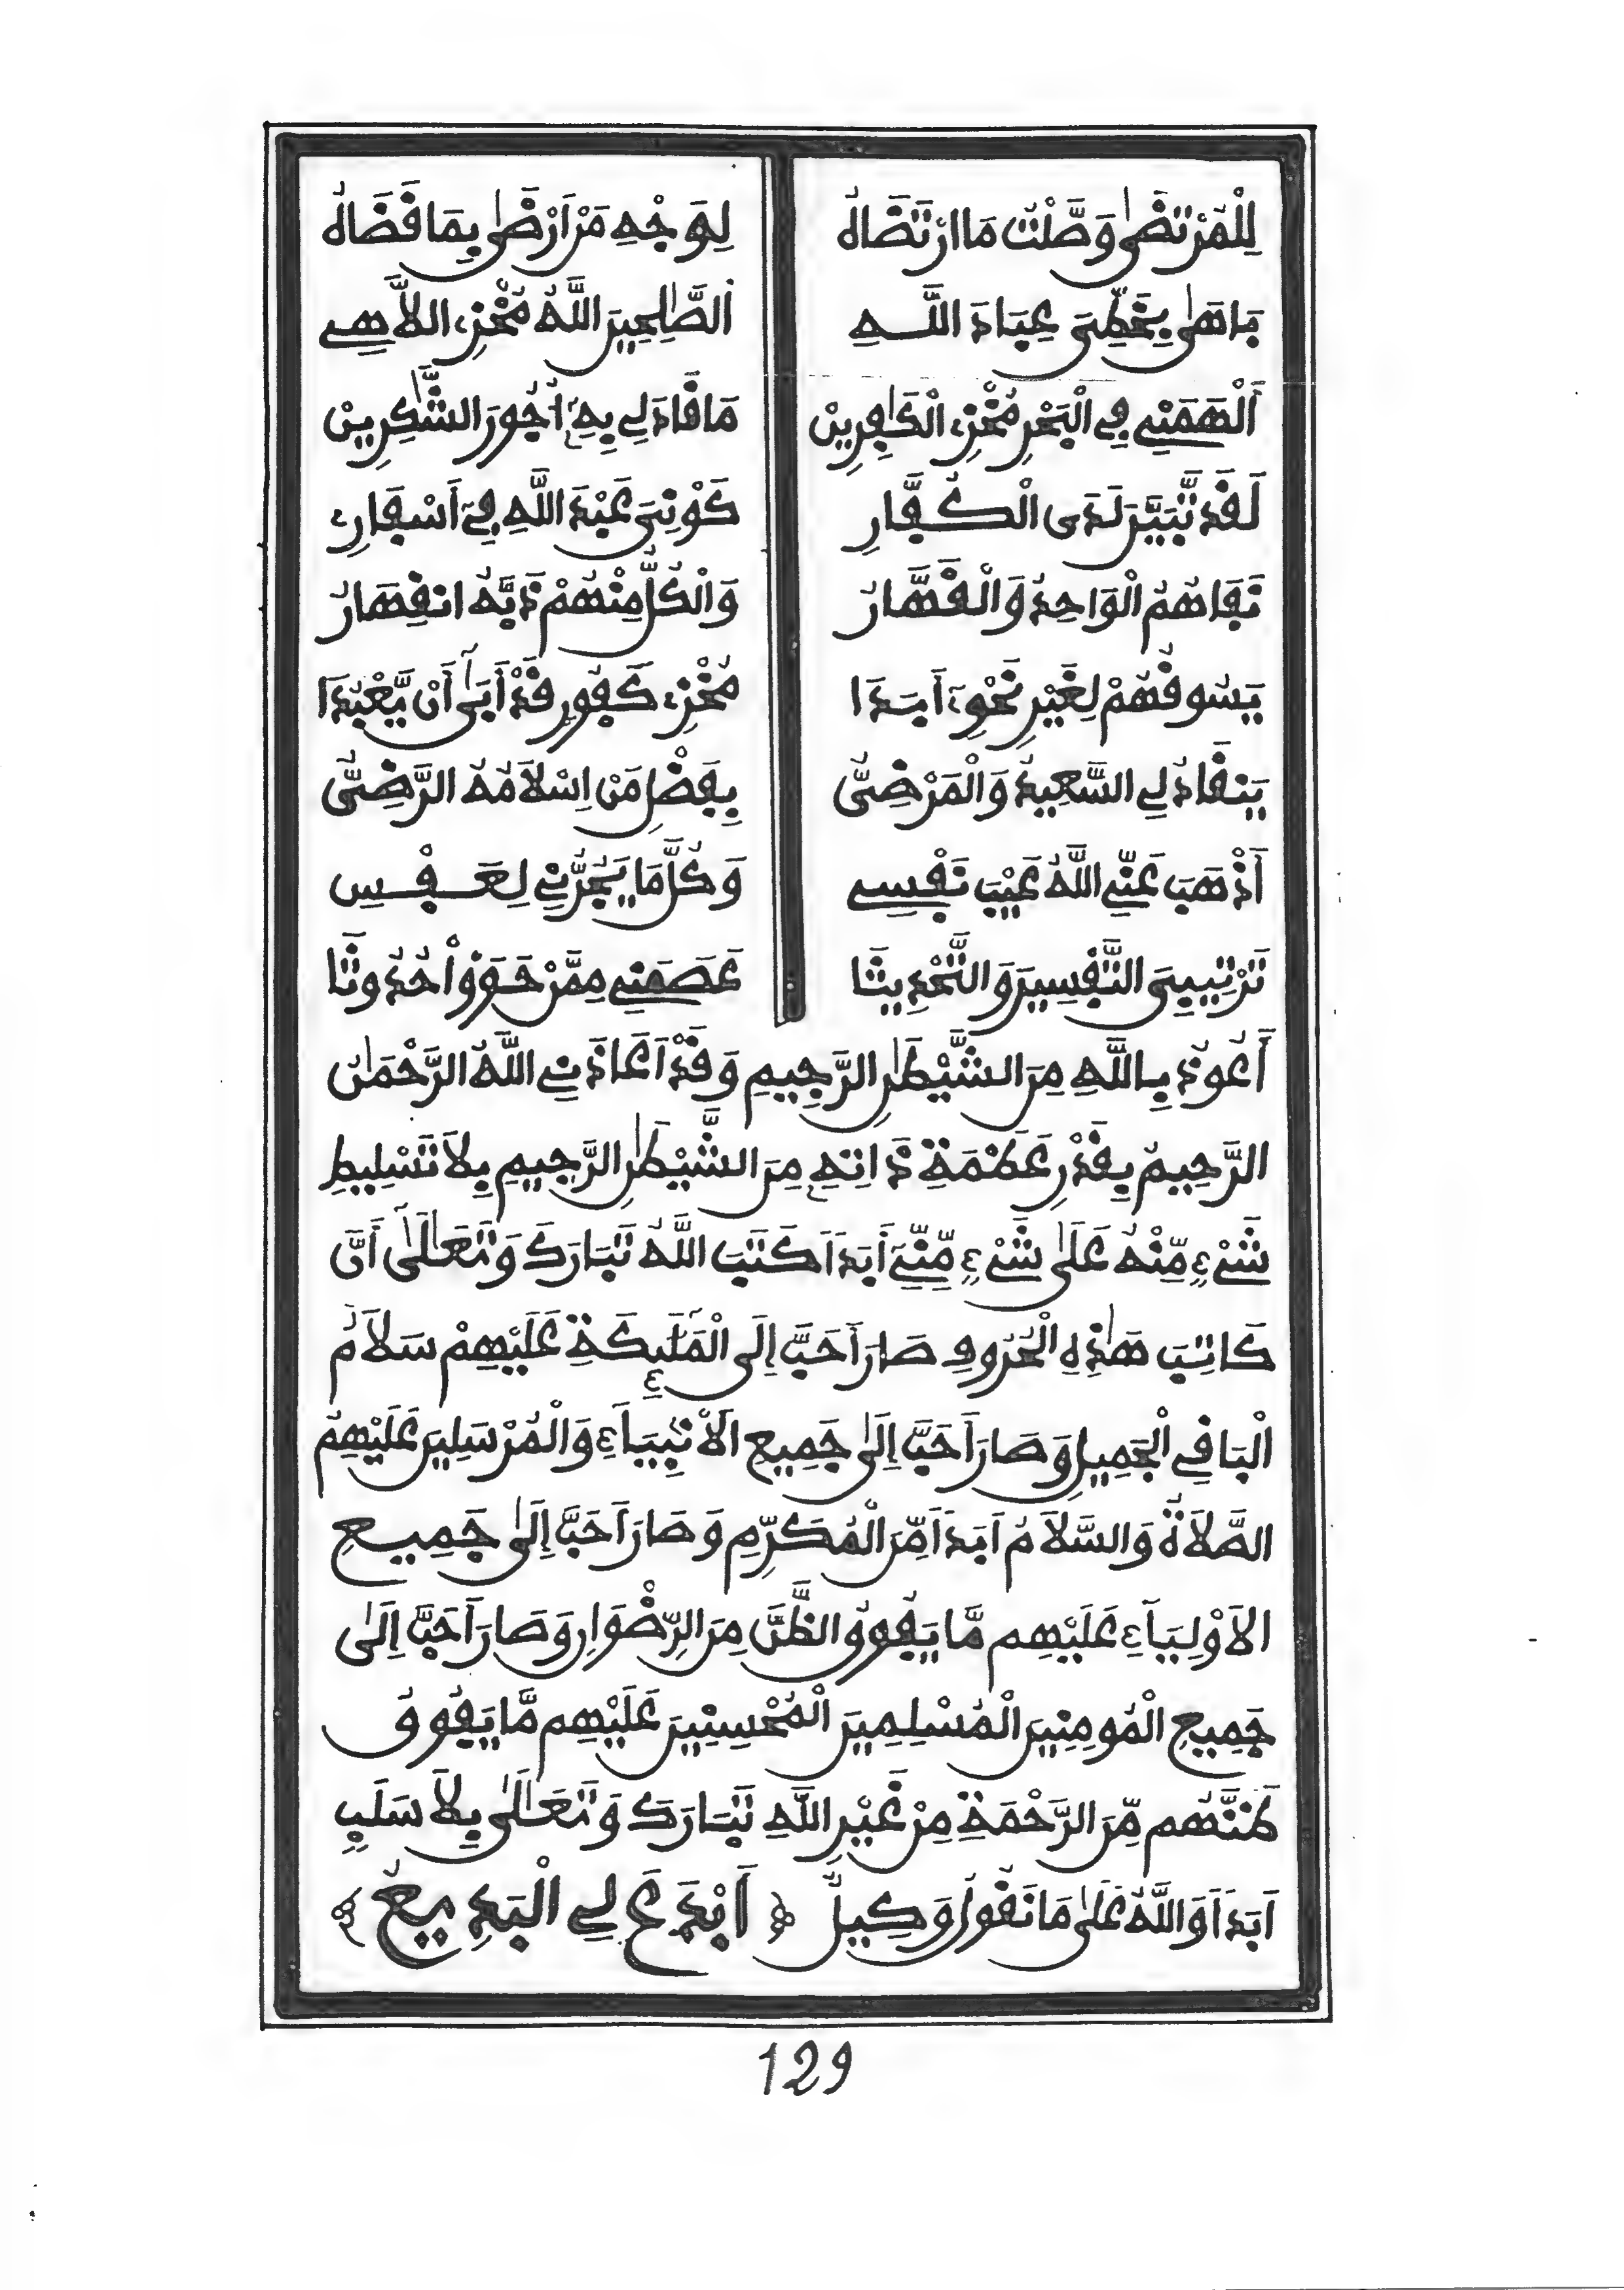 لِلْمُرْتَضَىٰ وَصَّلْتُ مَا ارْتَضَاهُ لِوَجْهِ مَنْ أَرْضَىٰ بِمَا قَضَاهُ
بَاهَىٰ بِخَطِّيَ عِبَادَ اللَّهِ الصَّٰلِحِينَ اللَّهُ مُخْزِي اللَّاهِي
أَلْهَمَنِي فِي الْبَحْرِ مُخْزِي الْكَٰفِرِينْ مَا قَادَ لِي بِهِ أُجُورَ الشَّٰكِرِينْ
لَقَدْ تَّبَيَّنَ لَدَى الْكُفَّارِ كَوْنِيَ عَبْدَ اللَّهِ فِي أَسْفَارِي
نَفَاهُمُ الْوَاحِدُ وَالْقَهَّارُ وَالْكُلُّ مِنْهُمْ دَأْبُهُ انْقِهَارُ
يَسُوقُهُمْ لِغَيْرِ نَحْوِي أَبَدَا مُخْزِي كَفُورٍ قَدْ أَبَىٰ أَنْ يَّعْبُدَا
يَنْقَادُ لِي السَّعِيدُ وَالْمَرْضِيُّ بِفَضْلِ مَنْ إِسْلَامُهُ الرَّضِيُّ
أَذْهَبَ عَنِّي اللَّهُ عَيْبَ نَفْسِي وَكُلَّ مَا يَجُرُّنِي لِعَفْسِ
تَرْتِيبِيَ التَّفْسِيرَ وَالتَّحْدِيثَا عَصَمَنِي مِمَّنْ حَوَوْا حُدُوثَا
أَعُوذُ بِاللَّهِ مِنَ الشَّيْطَٰنِ الرَّجِيمِ وَقَدْ أَعَاذَنِي اللَّهُ الرَّحْمَٰنُ
الرَّحِيمُ بِقَدْرِ عَظَمَةِ ذَاتِهِ مِنَ الشَّيْطَٰنِ الرَّجِيمِ بِلَا تَسْلِيطِ
شَيْءٍ مِّنْهُ عَلَىٰ شَيْءٍ مِّنِّي أَبَدًا كَتَبَ اللَّهُ تَبَارَكَ وَتَعَالَىٰ أَنَّ
كَاتِبَ هَٰذِهِ الْحُرُوفِ صَارَ أَحَبَّ إِلَى الْمَلَٰئِكَةِ عَلَيْهِمْ سَلَامُ
الْبَاقِي الْجَمِيلِ وَصَارَ أَحَبَّ إِلَىٰ جَمِيعِ الْأَنْبِيَاءِ وَالْمُرْسَلِينَ عَلَيْهِمُ
الصَّلَاةُ وَالسَّلَامُ أَبَدًا مِّنَ الْمُكَرِّمِ وَصَارَ أَحَبَّ إِلَىٰ جَمِيعِ
الْأَوْلِيَاءِ عَلَيْهِم مَّا يَفُوقُ الظَّنَّ مِنَ الرِّضْوَانِ وَصَارَ أَحَبَّ إِلَىٰ
جَمِيعِ الْمُومِنِينَ الْمُسْلِمِينَ الْمُحْسِنِينَ عَلَيْهِم مَّا يَفُوقُ
ظَنَّهُم مِّنَ الرَّحْمَةِ مِنْ غَيْرِ اللَّهِ تَبَارَكَ وَتَعَالَىٰ بِلَا سَلَبٍ
أَبَدًا وَاللَّهُ عَلَىٰ مَا نَقُولُ وَكِيلٌ ﴿ أَبْدَعَ لِي الْبَدِيعُ ﴾
129